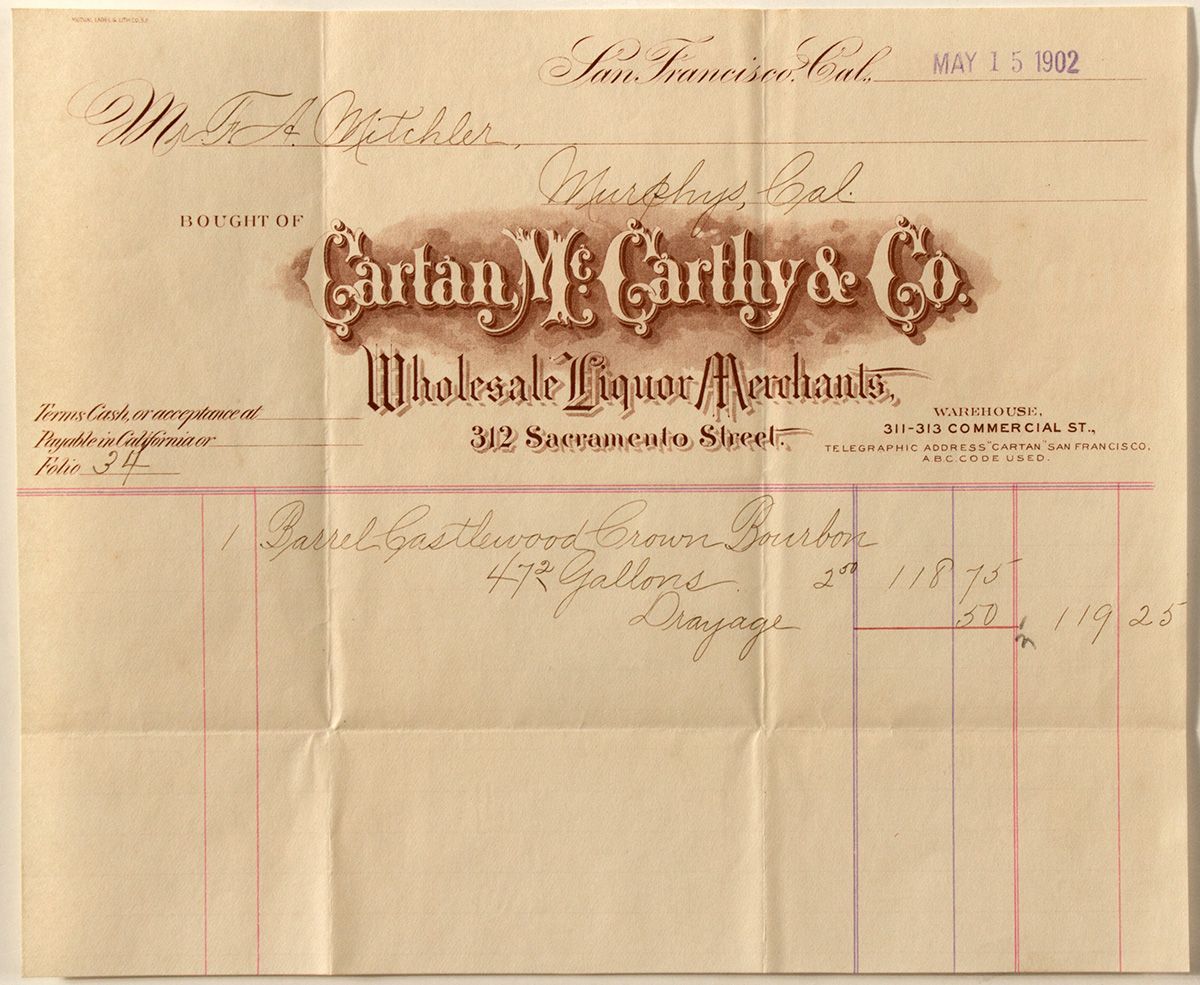 MUTUAL LABEL & LITH CO. S.F.
San Francisco, Cal., MAY 15 1902
Mr F. A. Mitchler,
Murphys, Cal.
BOUGHT OF
Cartan, McCarthy & Co.
Wholesale Liquor Merchants,
312 Sacramento Street.
Terms Cash, or acceptance at
Payable in California or
Folio 34
WAREHOUSE,
311-313 COMMERCIAL ST.,
TELEGRAPHIC ADDRESS "CARTAN" SAN FRANCISCO.
A.B.C. CODE USED.
1 Barrel Castlewood Crown Bourbon
47 2/ Gallons. 2 50 118 75
Drayage 50 119 25